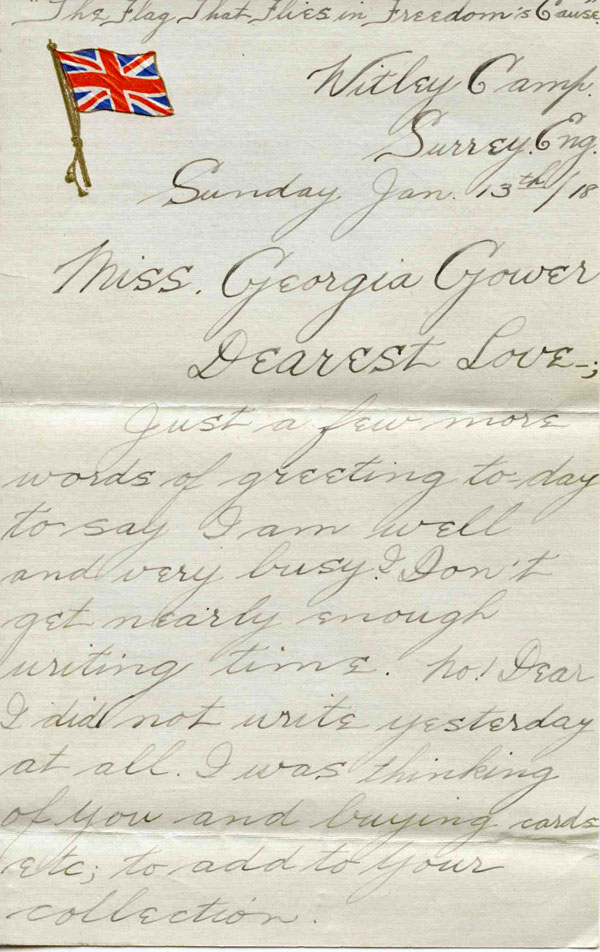 "The Flag That Flies in Freedom's Cause"
Witley Camp.
Surrey. Eng.
Sunday Jan. 13th/18
Miss. Georgia Gower
Dearest Love-;
Just a few more
words of greeting to-day
to say I am well
and very busy? I Don't
get nearly enough
writing time. No! Dear
I did not write yesterday
at all. I was thinking
of you and buying cards
etc; to add to your
collection.